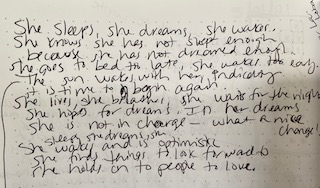 She sleeps, she dreams, she wakes.
She knows she has not slept enough
because she has not dreamed enough.
She goes to bed too late, she wakes too early.
The sun wakes with her, indicating
it is time to begin again.
She lives, she breathes, she waits for the night
She hopes for dreams. In her dreams
She is not in charge – what a nice
change!
She sleeps, she dreams, she
wakes and is optimistic
She finds things to look forward to
She holds on to people to love.